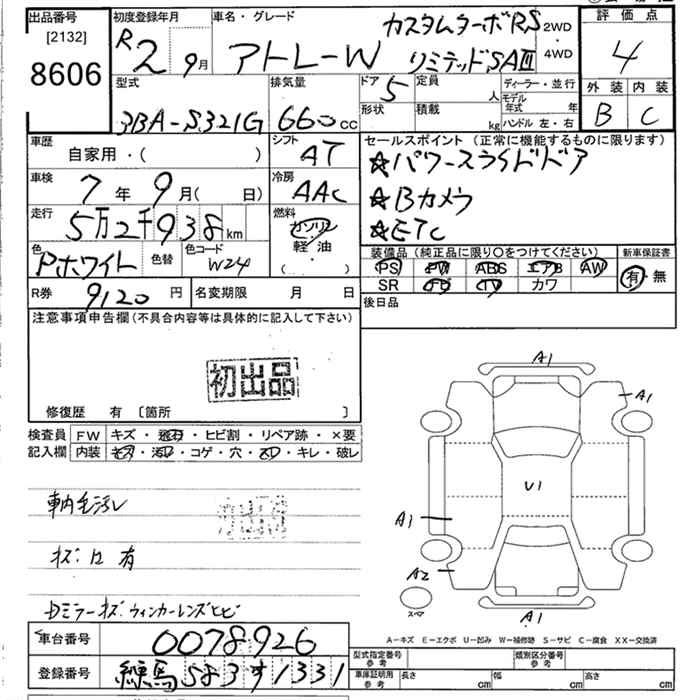 出品番号
[2132]
8606
初度登録年月
R2 9月
車名・グレード
アトレーW カスタムターボRS
リミテッドSAⅢ
2WD
・
4WD
評価点
4
外装 内装
B C
型式
3BA-S321G
排気量
660cc
ドア 5
定員 人
形状
積載 kg
ディーラー・並行
モデル年式 年
ハンドル 左・右
車歴
自家用・( )
シフト
AT
セールスポイント (正常に機能するものに限ります)
☆パワースライドドア
☆Bカメラ
☆ETC
車検
7年 9月( 日)
冷房
AAC
走行
5万2千938km
燃料
ガソリン
軽油
( ・ )
色
Pホワイト
色替
色コード
W24
装備品 (純正品に限り○をつけてください)
新車保証書
PS PW ABS エアB AW
SR CD TV カワ
有・無
R券 9120円
名変期限 月 日
後日品
注意事項申告欄(不具合内容等は具体的に記入して下さい)
初出品
修復歴 有 〔箇所 〕
検査員
記入欄
FW キズ・飛石・ヒビ割・リペア跡・×要
内装 キズ・汚れ・コゲ・穴・スレ・キレ・破レ
車内毛汚レ
キズ・凹 有
Dミラーキズ・ウィンカーレンズヒビ
A1
A1
U1
A1
A2
A1
スペア
A-キズ E-エクボ U-凹み W-補修跡 S-サビ C-腐食 XX-交換済
車台番号
0078926
登録番号
練馬583す1331
型式指定番号
参考
類別区分番号
参考
車庫証明用
参考
長さ cm
幅 cm
高さ cm